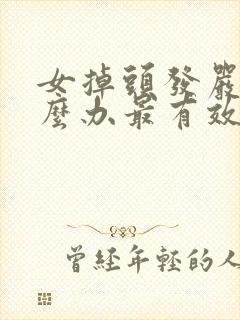 女掉頭發嚴
麼办最有效
曾経年輕的人